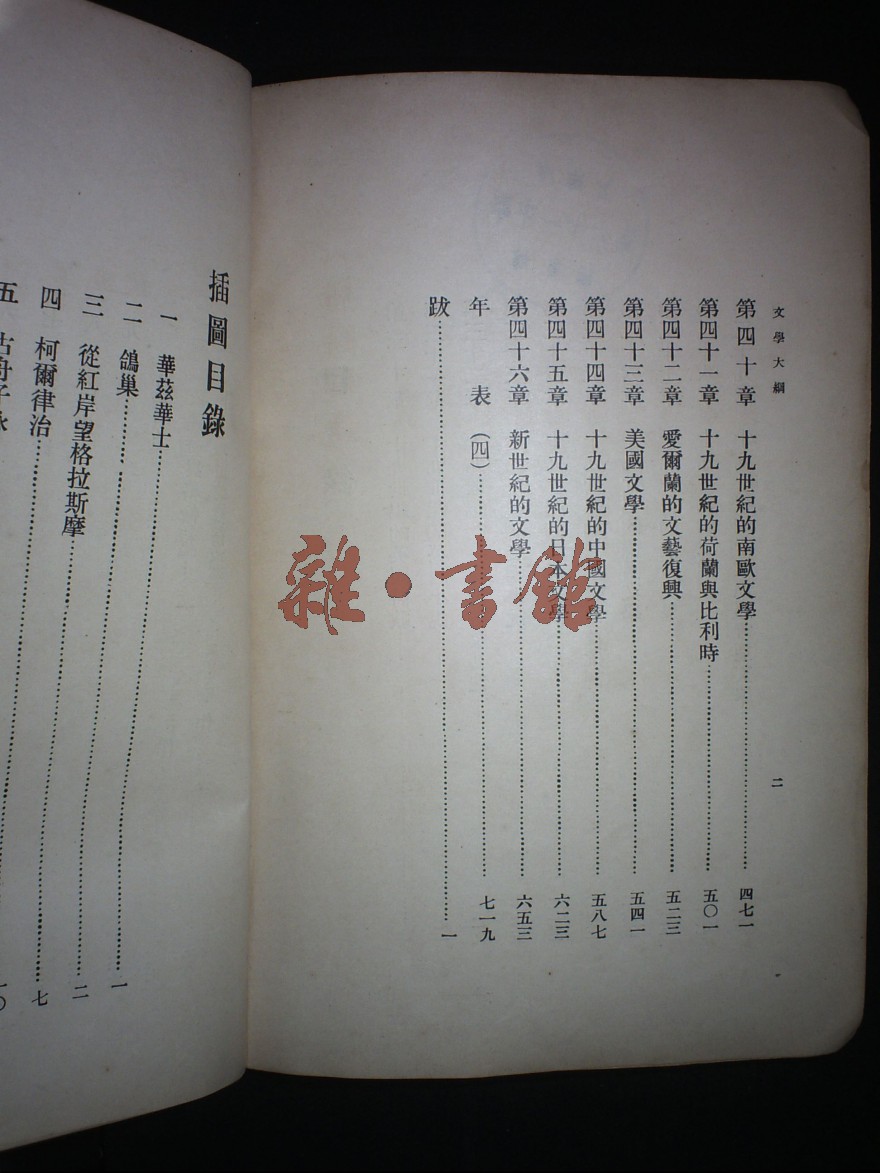 文學大綱
第四十章 十九世紀的南歐文學 四七一
第四十一章 十九世紀的荷蘭與比利時 五〇一
第四十二章 愛爾蘭的文藝復興 五二三
第四十三章 美國文學 五四一
第四十四章 十九世紀的中國文學 五八七
第四十五章 十九世紀的日本文學 六二三
第四十六章 新世紀的文學 六五三
年表(四) 七一九
跋 一
二
插圖目錄
一 華茲華士 一
二 鴿巢 二
三 從紅岸望格拉斯摩
四 柯爾律治 七
五
雜·書館